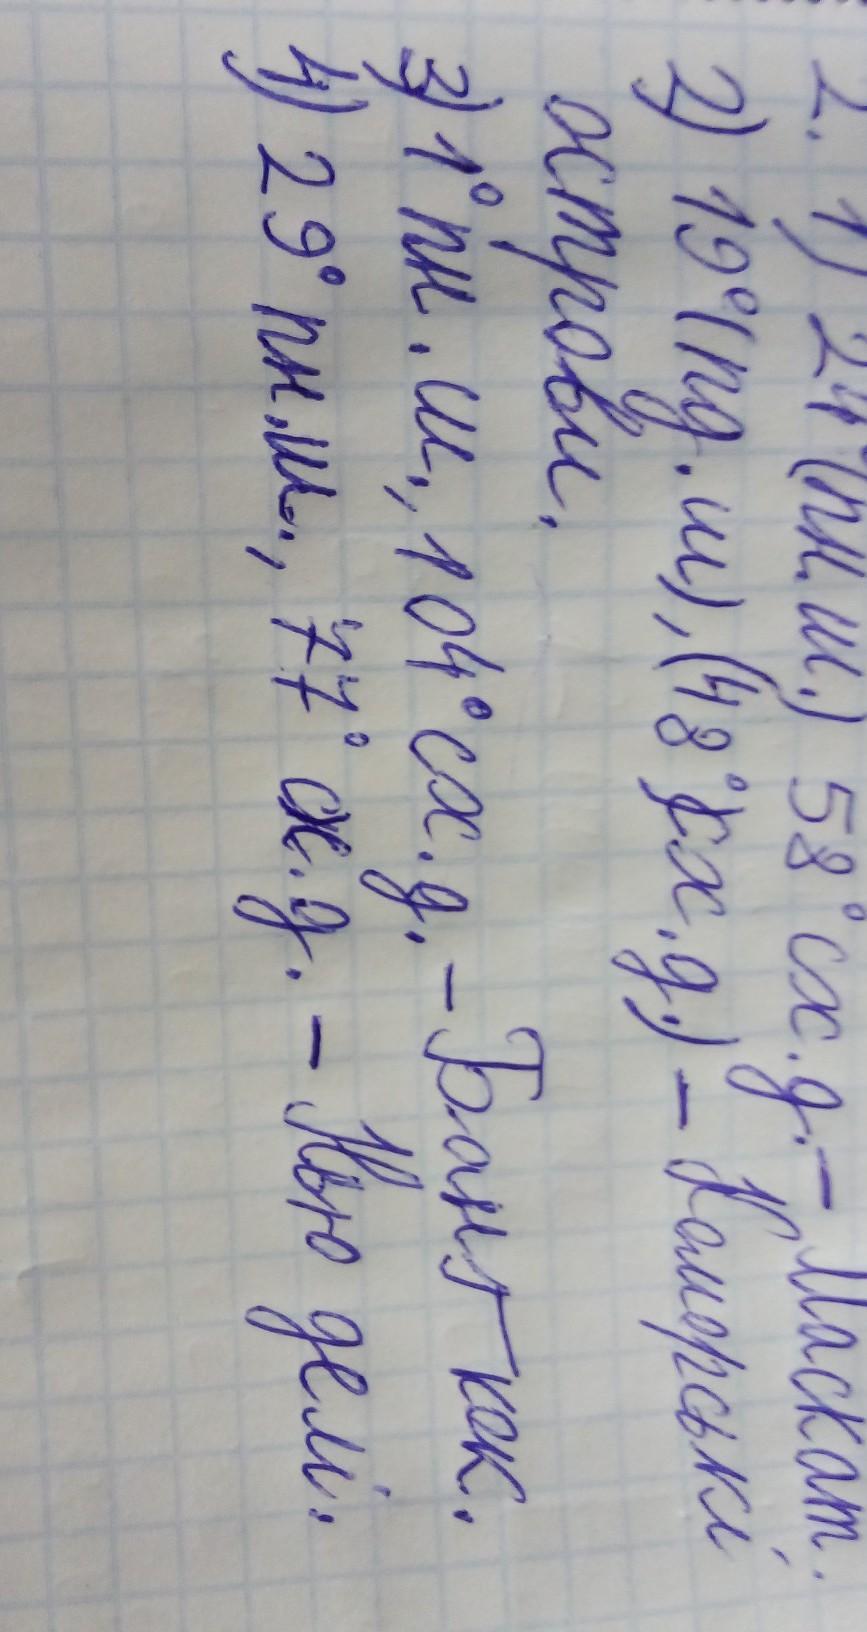 2. 1) 24° (пн.ш.) 58° сх.д. – Маскат.
2) 19° (пд.ш), (48° сх.д.) – Коморські
острови.
3) 1° пн.ш., 104° сх.д. – Бангкок.
4) 29° пн.ш., 77° сх.д. – Нью делі.